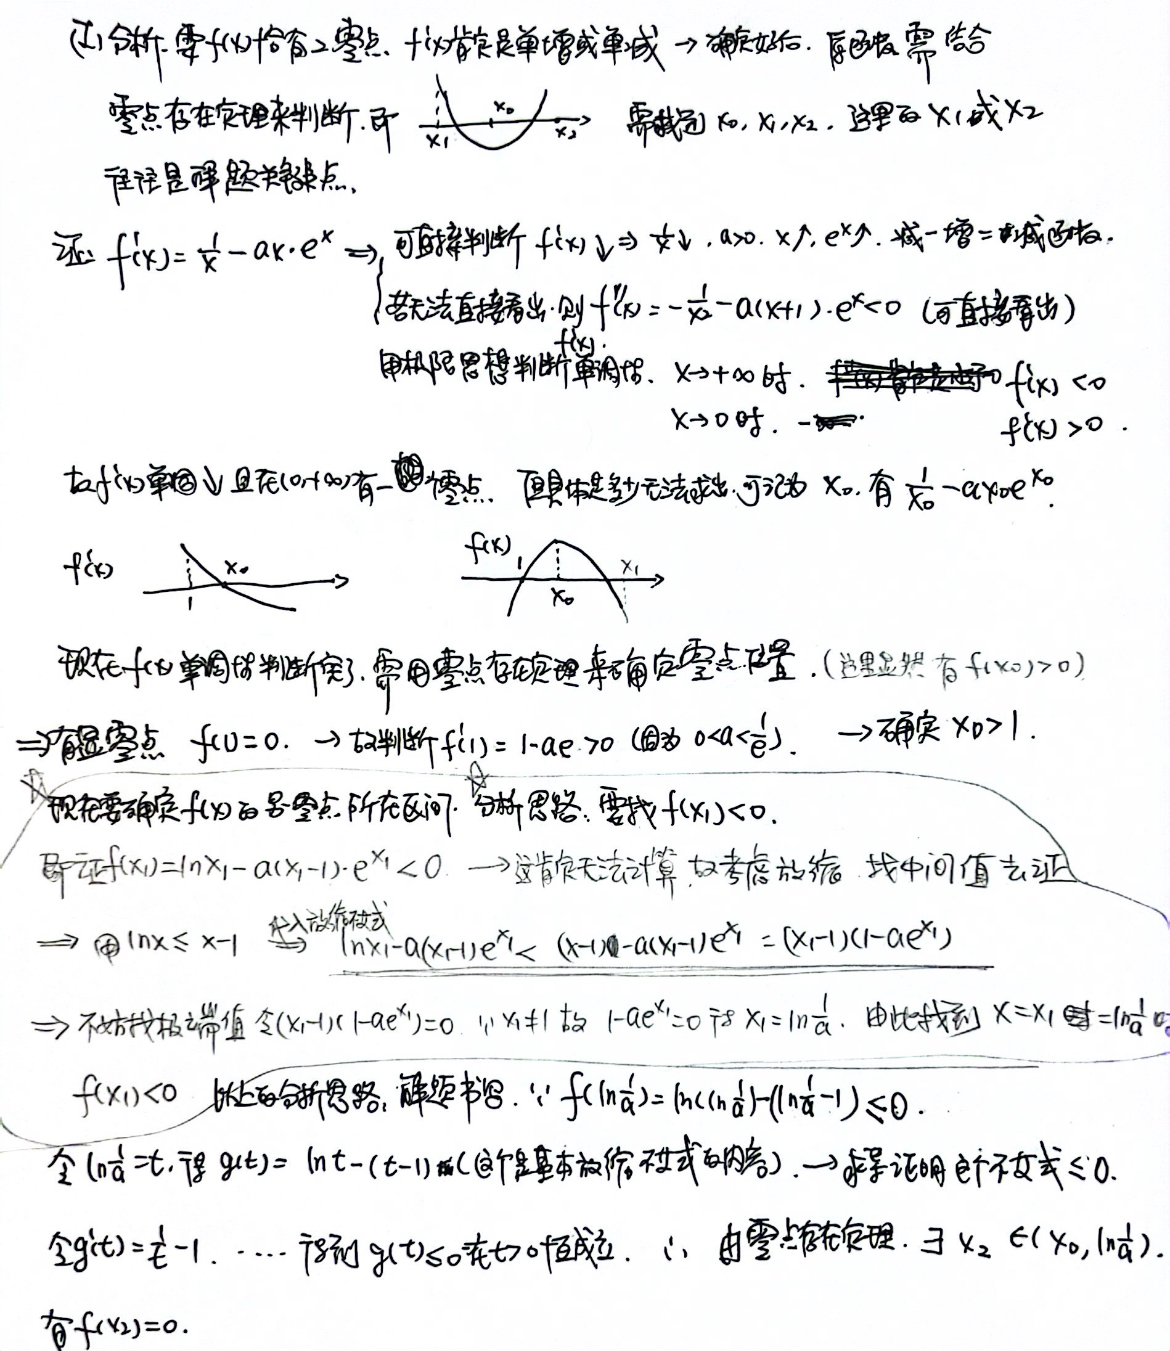 (I) 分析: 要f(x)恰有2零点. f'(x)肯定是单增或单减 → 确定好后. 原函数需结合
零点存在定理来判断. 即 x₁ x₀ x₂ 需找到 x₀, x₁, x₂. 这里的 x₁ 或 x₂
往往是解题关键点.
证: f'(x) = 1/x - ax·eˣ ⇒ 可直接判断 f'(x)↓ ⇒ 1/x↓, a>0. x↑, eˣ↑. 减-增=减函数.
若无法直接看出. 则 f''(x) = -1/x² - a(x+1)·eˣ < 0 (可直接看出)
用极限思想判断 f'(x) 单调性. x→+∞时. f'(x) < 0
x→0时. f'(x) > 0.
故f'(x)单调↓且在(0,+∞)有一个零点. 但具体是多少无法求出. 可记为 x₀. 有 1/x₀ - ax₀e^x₀.
f'(x) 1 x₀ f(x) 1 x₀ x₁
现在f(x)单调性判断完了. 需用零点存在定理来确定零点位置. (这里显然有 f(x₀)>0)
⇒ 有显零点 f(1)=0. → 故判断 f'(1) = 1-ae > 0 (因为 0<a<1/e). → 确定 x₀>1.
☆ 现在要确定f(x)的另零点所在区间. ☆ 分析思路: 要找 f(x₁)<0.
即证f(x₁)=lnx₁-a(x₁-1)·e^x₁<0. → 这肯定无法计算. 故考虑放缩. 找中间值去证
⇒ 用 lnx ≤ x-1 代入放缩不等式 ⇒ lnx₁-a(x₁-1)e^x₁ < (x-1)-a(x₁-1)e^x₁ = (x₁-1)(1-ae^x₁)
⇒ 不妨找极端值 令(x₁-1)(1-ae^x₁)=0 ∵ x₁≠1 故 1-ae^x₁=0 得 x₁=ln1/a. 由此找到 x=x₁=ln1/a时
f(x₁)<0 以上的分析思路, 解题书写. ∵ f(ln1/a)=ln(ln1/a)-(ln1/a-1)≤0.
令 ln1/a=t, 得 g(t)= lnt-(t-1) (这个是基本放缩不等式的内容). → 求导证明这个不等式≤0.
令g'(t)=1/t-1. ···· 得到 g(t)≤0在t>0恒成立. ∴ 由零点存在定理. ∃ x₂ ∈(x₀, ln1/a).
有f(x₂)=0.